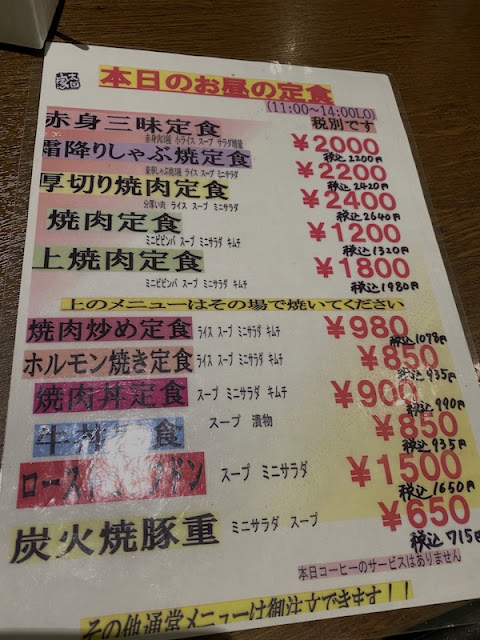 本日のお昼の定食
(11:00〜14:00LO)
税別です
赤身三昧定食 ¥2000
赤身肉3種 小ライス スープ サラダ増量 税込2200円
霜降りしゃぶ焼定食 ¥2200
豪華しゃぶ焼3種 ライス スープ ミニサラダ 税込2420円
厚切り焼肉定食 ¥2400
分厚い肉 ライス スープ ミニサラダ 税込2640円
焼肉定食 ¥1200
ミニビビンバ スープ ミニサラダ キムチ 税込1320円
上焼肉定食 ¥1800
ミニビビンバ スープ ミニサラダ キムチ 税込1980円
上のメニューはその場で焼いてください
焼肉炒め定食 ライス スープ ミニサラダ キムチ ¥980 税込1078円
ホルモン焼き定食 ライス スープ ミニサラダ キムチ ¥850 税込935円
焼肉丼定食 スープ ミニサラダ キムチ ¥900 税込990円
牛丼定食 スープ 漬物 ¥850 税込935円
スープ ミニサラダ ¥1500 税込1650円
炭火焼豚重 ミニサラダ スープ ¥650 税込715円
本日コーヒーのサービスはありません
その他通常メニューは御注文できます!!